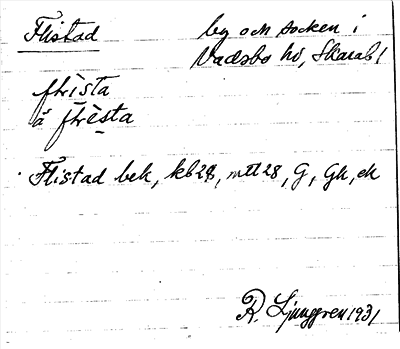 Flistad by och socken i
Vadsbo hd, Skarab l
flrìsta
ä flrèsta
Flistad bek, kb28, mtl28, G, Gk, ek
R. Ljunggren 1931